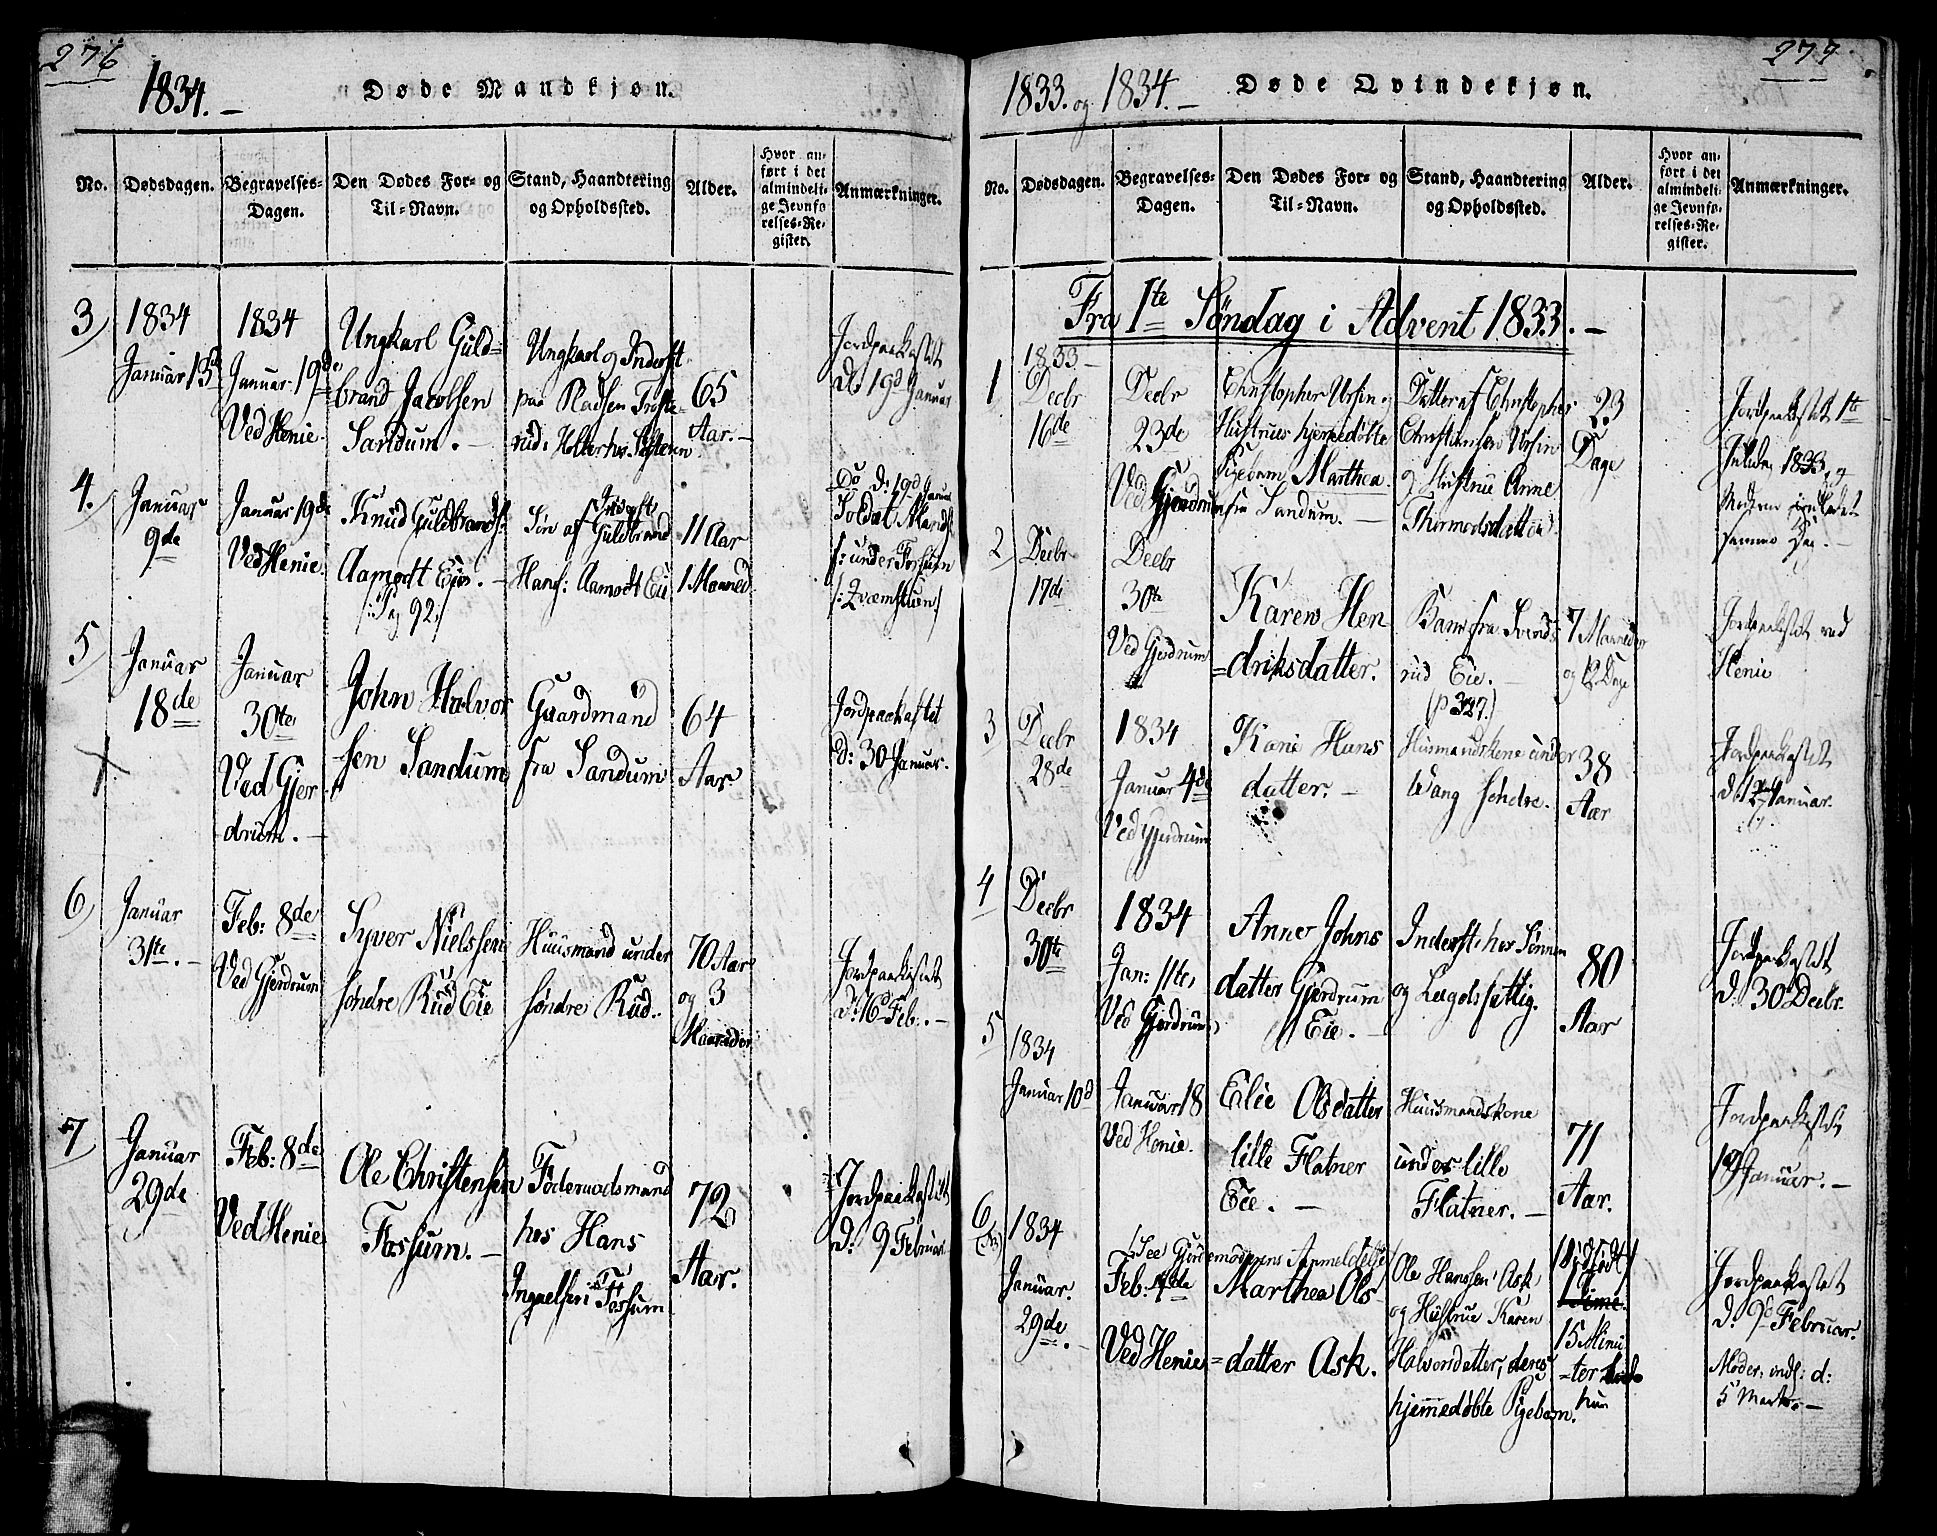 276
1834. —
Døde Mandkjøn.
No.
Dødsdagen.
Begravelses-
Dagen.
Den Dødes For- og
Til-Navn.
Stand, Haandtering
og Opholdssted.
Alder.
Hvor an-
ført i det
almindeli-
ge Jevnfø-
relses-Re-
gister.
Anmærkninger.
3)
1834
Januar 13de
1834
Januar 19de
Ved Henie
Ungkarl Guld-
brand Jacobsen
Sandum. —
Ungkarl og Inderst
paa Pladsen
65
Aar. —
Jordpaakastet
d: 19d Januar
4.
Januar
9de
Januar 19de
Ved Henie
Knud Guldbrands:
Aamodt Eie. —
/: Pag 92 :/
Søn af Inderst
Guldbrand
Hans: Aamodt Eie
11 Aar
1 Maaned
Do d: 19d Januar
/: under Fossum
5)
Januar
18de
Januar
30te
Ved Gjer
drum. —
John Halvor
sen Sandum
Gaardmand
fra Sandum
64
Aar.
Jordpaakastet
d: 30 Januar.
6)
Januar
31te. —
Feb: 8de
Ved Gjerdrum
Syver Nielssen
søndre Rud Eie
Huusmand under
søndre Rud.
70 Aar
og 3
Maaneder
Jordpaakastet
d: 16 Feb. —
7)
Januar
29de
Feb: 8de
Ved Henie
Ole Christensen
Fossum. —
Føderaadsmand
hos Hans
Ingvelsen Fossum
72
Aar.
Jordpaakastet
d: 9 Februar
277.
1833. og 1834. —
Døde Qvindekjøn.
No.
Dødsdagen.
Begravelses-
Dagen.
Den Dødes For- og
Til-Navn.
Stand, Haandtering
og Opholdssted.
Alder.
Hvor an-
ført i det
almindeli-
ge Jevnfø-
relses-Re-
gister.
Anmærkninger.
Fra 1te Søndag i Advent 1833. —
1
1833
Decbr
16de
Decbr
23de
Ved Gjerdrum
Christopher Ursin og
Hustrues hjemedøbte
Pigebarn Marthea
fra Sandum. —
Datter af Christopher
Christiansen Ursin
og Hustrue Anne
Thormodsdatter
23
Dage
Jordpaakastet 1te
Juledag 1833, og
Moderen indledet
samme Dag. —
2)
Decbr
17de
Decbr
30te
Ved Gjerdrum
Karen Hen
=driksdatter.
Barn fra
rud Eie. —
(p 327.)
7 Maaneder
og Dage
Jordpaakastet ved
Henie
3)
Decbr
28de
1834
Januar 4de
Ved Gjerdrum
Karie Hans
datter. —
Huusmandskone under
Wang søndre.
38
Aar
Jordpaakastet
d: Januar.
4
Decbr
30te
1834
Jan: 11te
Ved Gjerdrum
Anne Johns
datter Gjerdrum
Eie. —
Inderst hos Sønnen
og Lægdsfattig.
80
Aar
Jordpaakastet
d: 30 Decbr.
5
1834
Januar 10d
Januar 18
Ved Henie.
Elie Olsdatter
lille Flatner
Eie. —
Huusmandskone
under lille
Flatner. —
71
Aar.
Jordpaakastet
19 Januar. —
6
1834
Januar.
29de. —
(See Gjordemoderens Anmeldelse)
Feb:
Ved Henie
Marthea Ols
=datter Ask.
Ole Hanssen Ask
og Hustrue Karen
Halvorsdatter, deres
hjemmedøbte Pigebarn.
1 Time.
15 Minu
=ter
Jordpaakastet
d: 9d Februar.
Moder: indl: d:
5 Marts. —